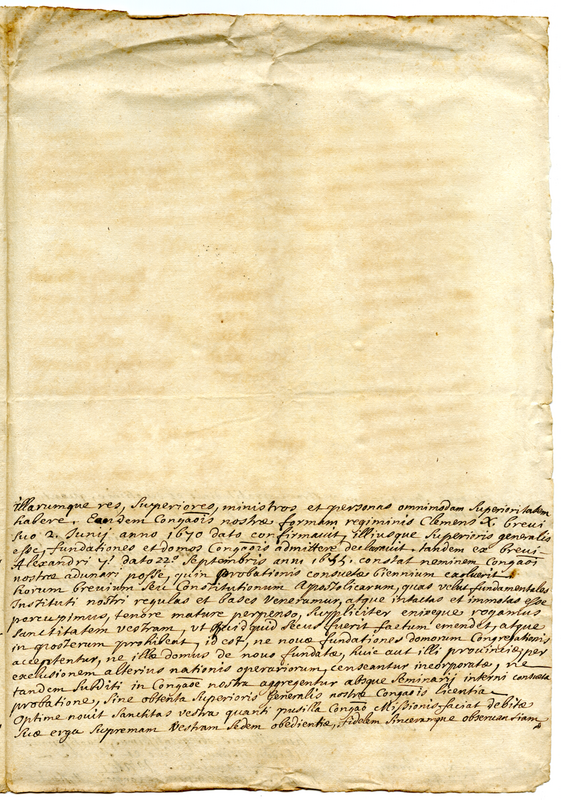 illarumque res, Superiores, ministros et personas omnimodam Superioritatem
habere. Eandem Congaõis nostræ formam regiminis Clemens X. brevi
suo 2. Junij anno 1670 dato confirmavit, illiusque Superioris generalis
esse, fundationes et domos Congaõis admittere declaravit. tandem ex brevi
Alexandri 7.i dato 22.a Septembris anni 1655. constat neminem Congaõi
nostræ adunari posse, quin probationis consuetæ biennium
horum brevium seu Constitutionum Apostolicarum, quas velut fundamentales
Instituti nostri regulas et bases Veneramur, atque intactas et immotas esse
percupimus, tenore mature perpenso, Suppliciter enixeque rogamus
Sanctitatem vestram, ut quidquid secus fuerit factum emendet, atque
in posterum prohibeat id est, ne novæ fundationes domorum Congregationis
acceptentur, ne illa domus de novo fundatæ, huic aut illi provinciæ, per
exclusionem alterius nationis operariorum, censeantur incorporatæ, ne
tandem Subditi in Congaõe nostra aggregentur absque Seminarij interni consueta
probatione, sine obtenta Superioris Generalis nostræ Congaõis licentia
Optime novit Sanctitas vestra quanti pusilla Congaõ Missionis faciat debitæ
Suæ erga Supremam Vestram Sedem obedientiæ, fidelem sinceramque observantiam